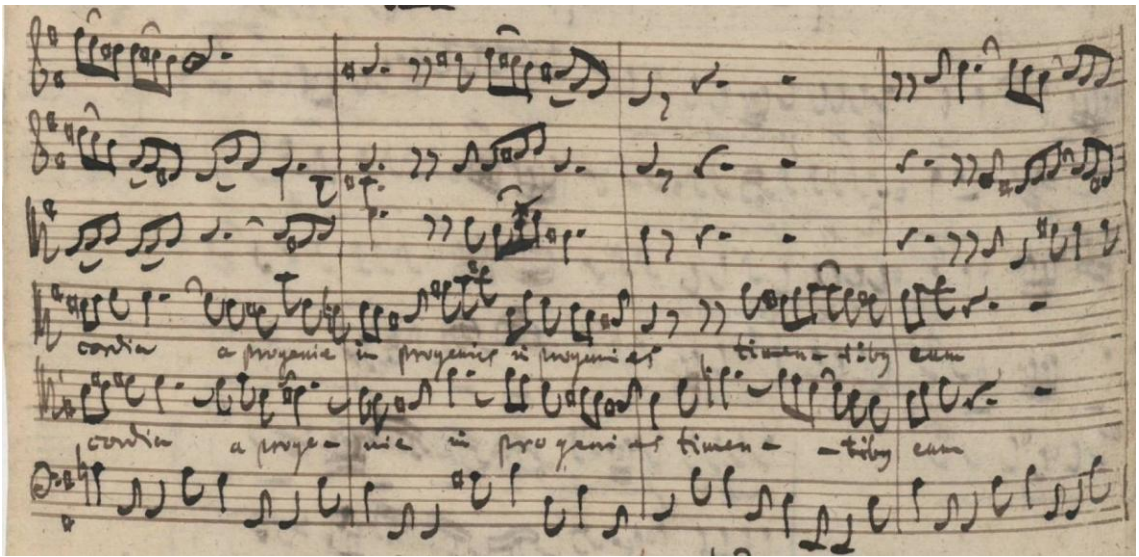 cordia a progenie in progenies in progenies timen- tiby eum
cordia a proge- nie in progenies timen- -tiby eum